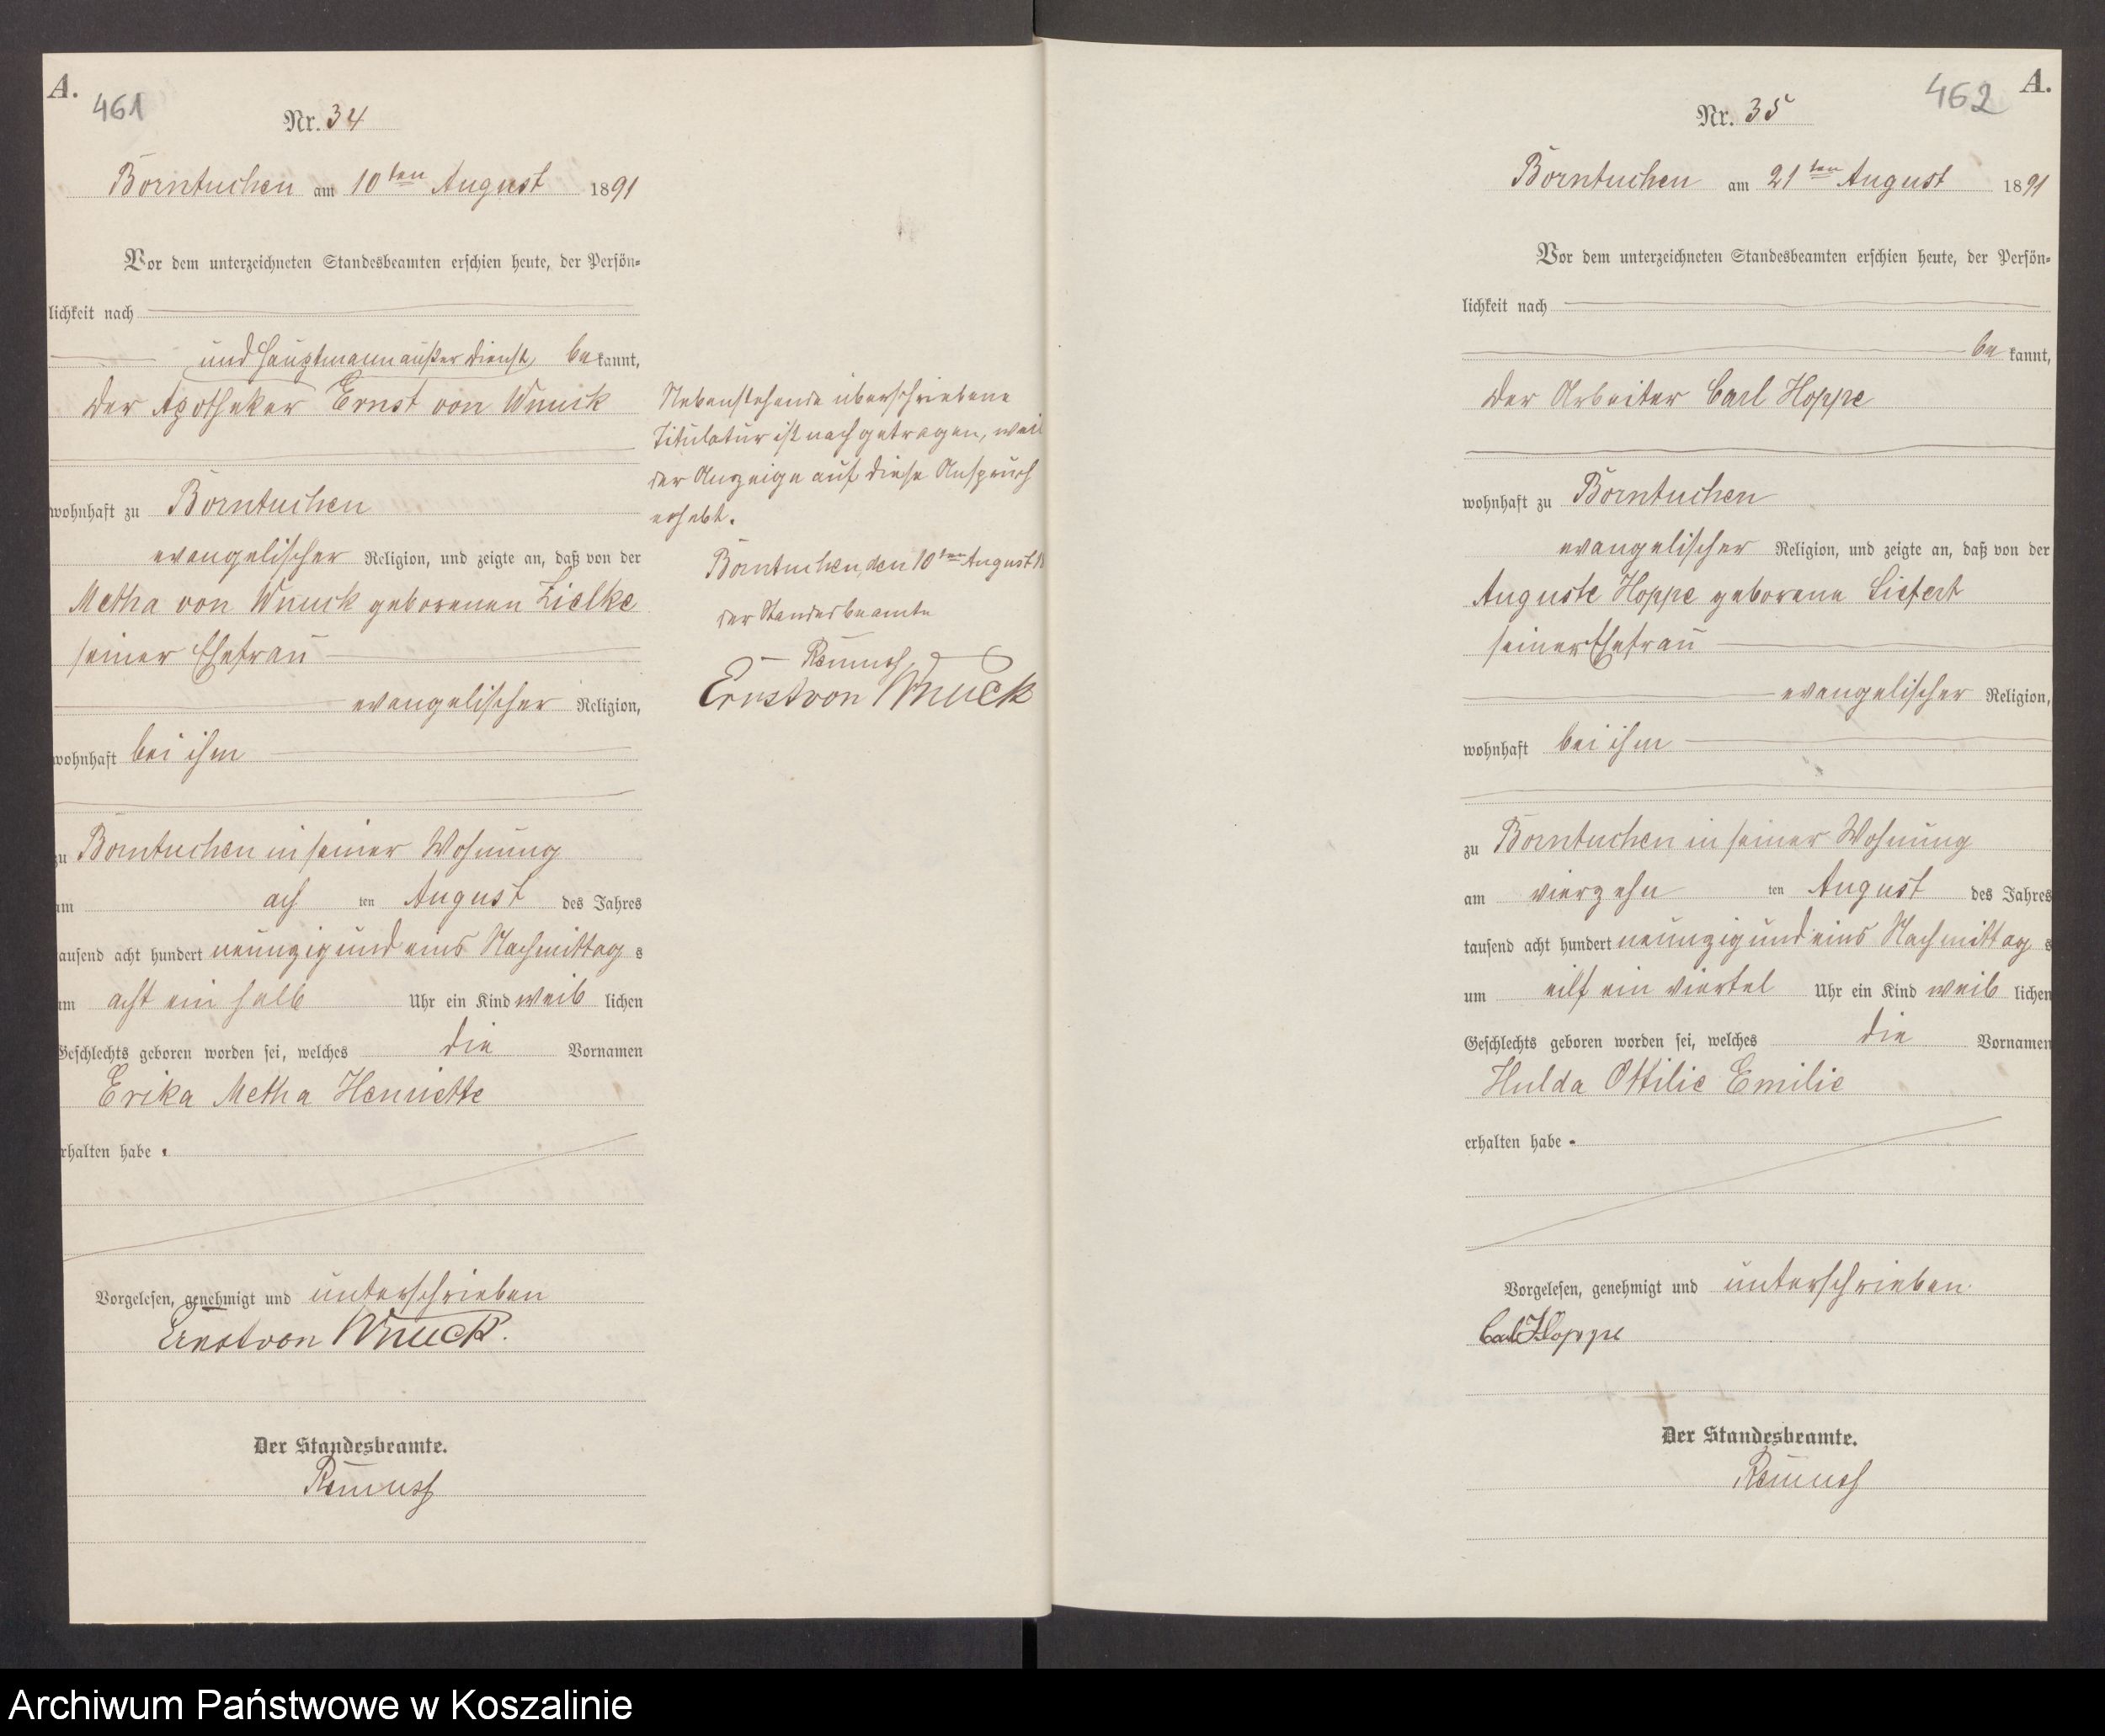 A.
461
Nr. 34
Borntuchen am 10ten August 1891
Vor dem unterzeichneten Standesbeamten erschien heute, der Persön=
lichkeit nach
und Hauptmann außer Dienst, be kannt,
der Apotheker Ernst von Wnuck
wohnhaft zu Borntuchen
evangelischer Religion, und zeigte an, daß von der
Metha von Wnuck geborenen Zielke
seiner Ehefrau
evangelischer Religion,
wohnhaft bei ihm
zu Borntuchen in seiner Wohnung
am ach ten August des Jahres
tausend acht hundert neunzig und eins Nachmittag s
um acht ein halb Uhr ein Kind weib lichen
Geschlechts geboren worden sei, welches die Vornamen
Erika Metha Henriette
erhalten habe.
Vorgelesen, genehmigt und unterschrieben
Ernst von Wnuck.
Der Standesbeamte.
Nebenstehende überschriebene
Titulatur ist nachgetragen, weil
der Anzeige auf diese Anspruch
erhebt.
Borntuchen, den 10ten August 18
der Standesbeamte
Ernst von Wnuck
462
A.
Nr. 35
Borntuchen am 21ten August 1891
Vor dem unterzeichneten Standesbeamten erschien heute, der Persön=
lichkeit nach
be kannt,
der Arbeiter Carl Hoppe
wohnhaft zu Borntuchen
evangelischer Religion, und zeigte an, daß von der
Auguste Hoppe geborene Siefert
seiner Ehefrau
evangelischer Religion,
wohnhaft bei ihm
zu Borntuchen in seiner Wohnung
am vierzehn ten August des Jahres
tausend acht hundert neunzig und eins Nachmittag s
um eilf ein viertel Uhr ein Kind weib lichen
Geschlechts geboren worden sei, welches die Vornamen
Hulda Ottilie Emilie
erhalten habe.
Vorgelesen, genehmigt und unterschrieben.
Carl Hoppe
Der Standesbeamte.
Archiwum Państwowe w Koszalinie